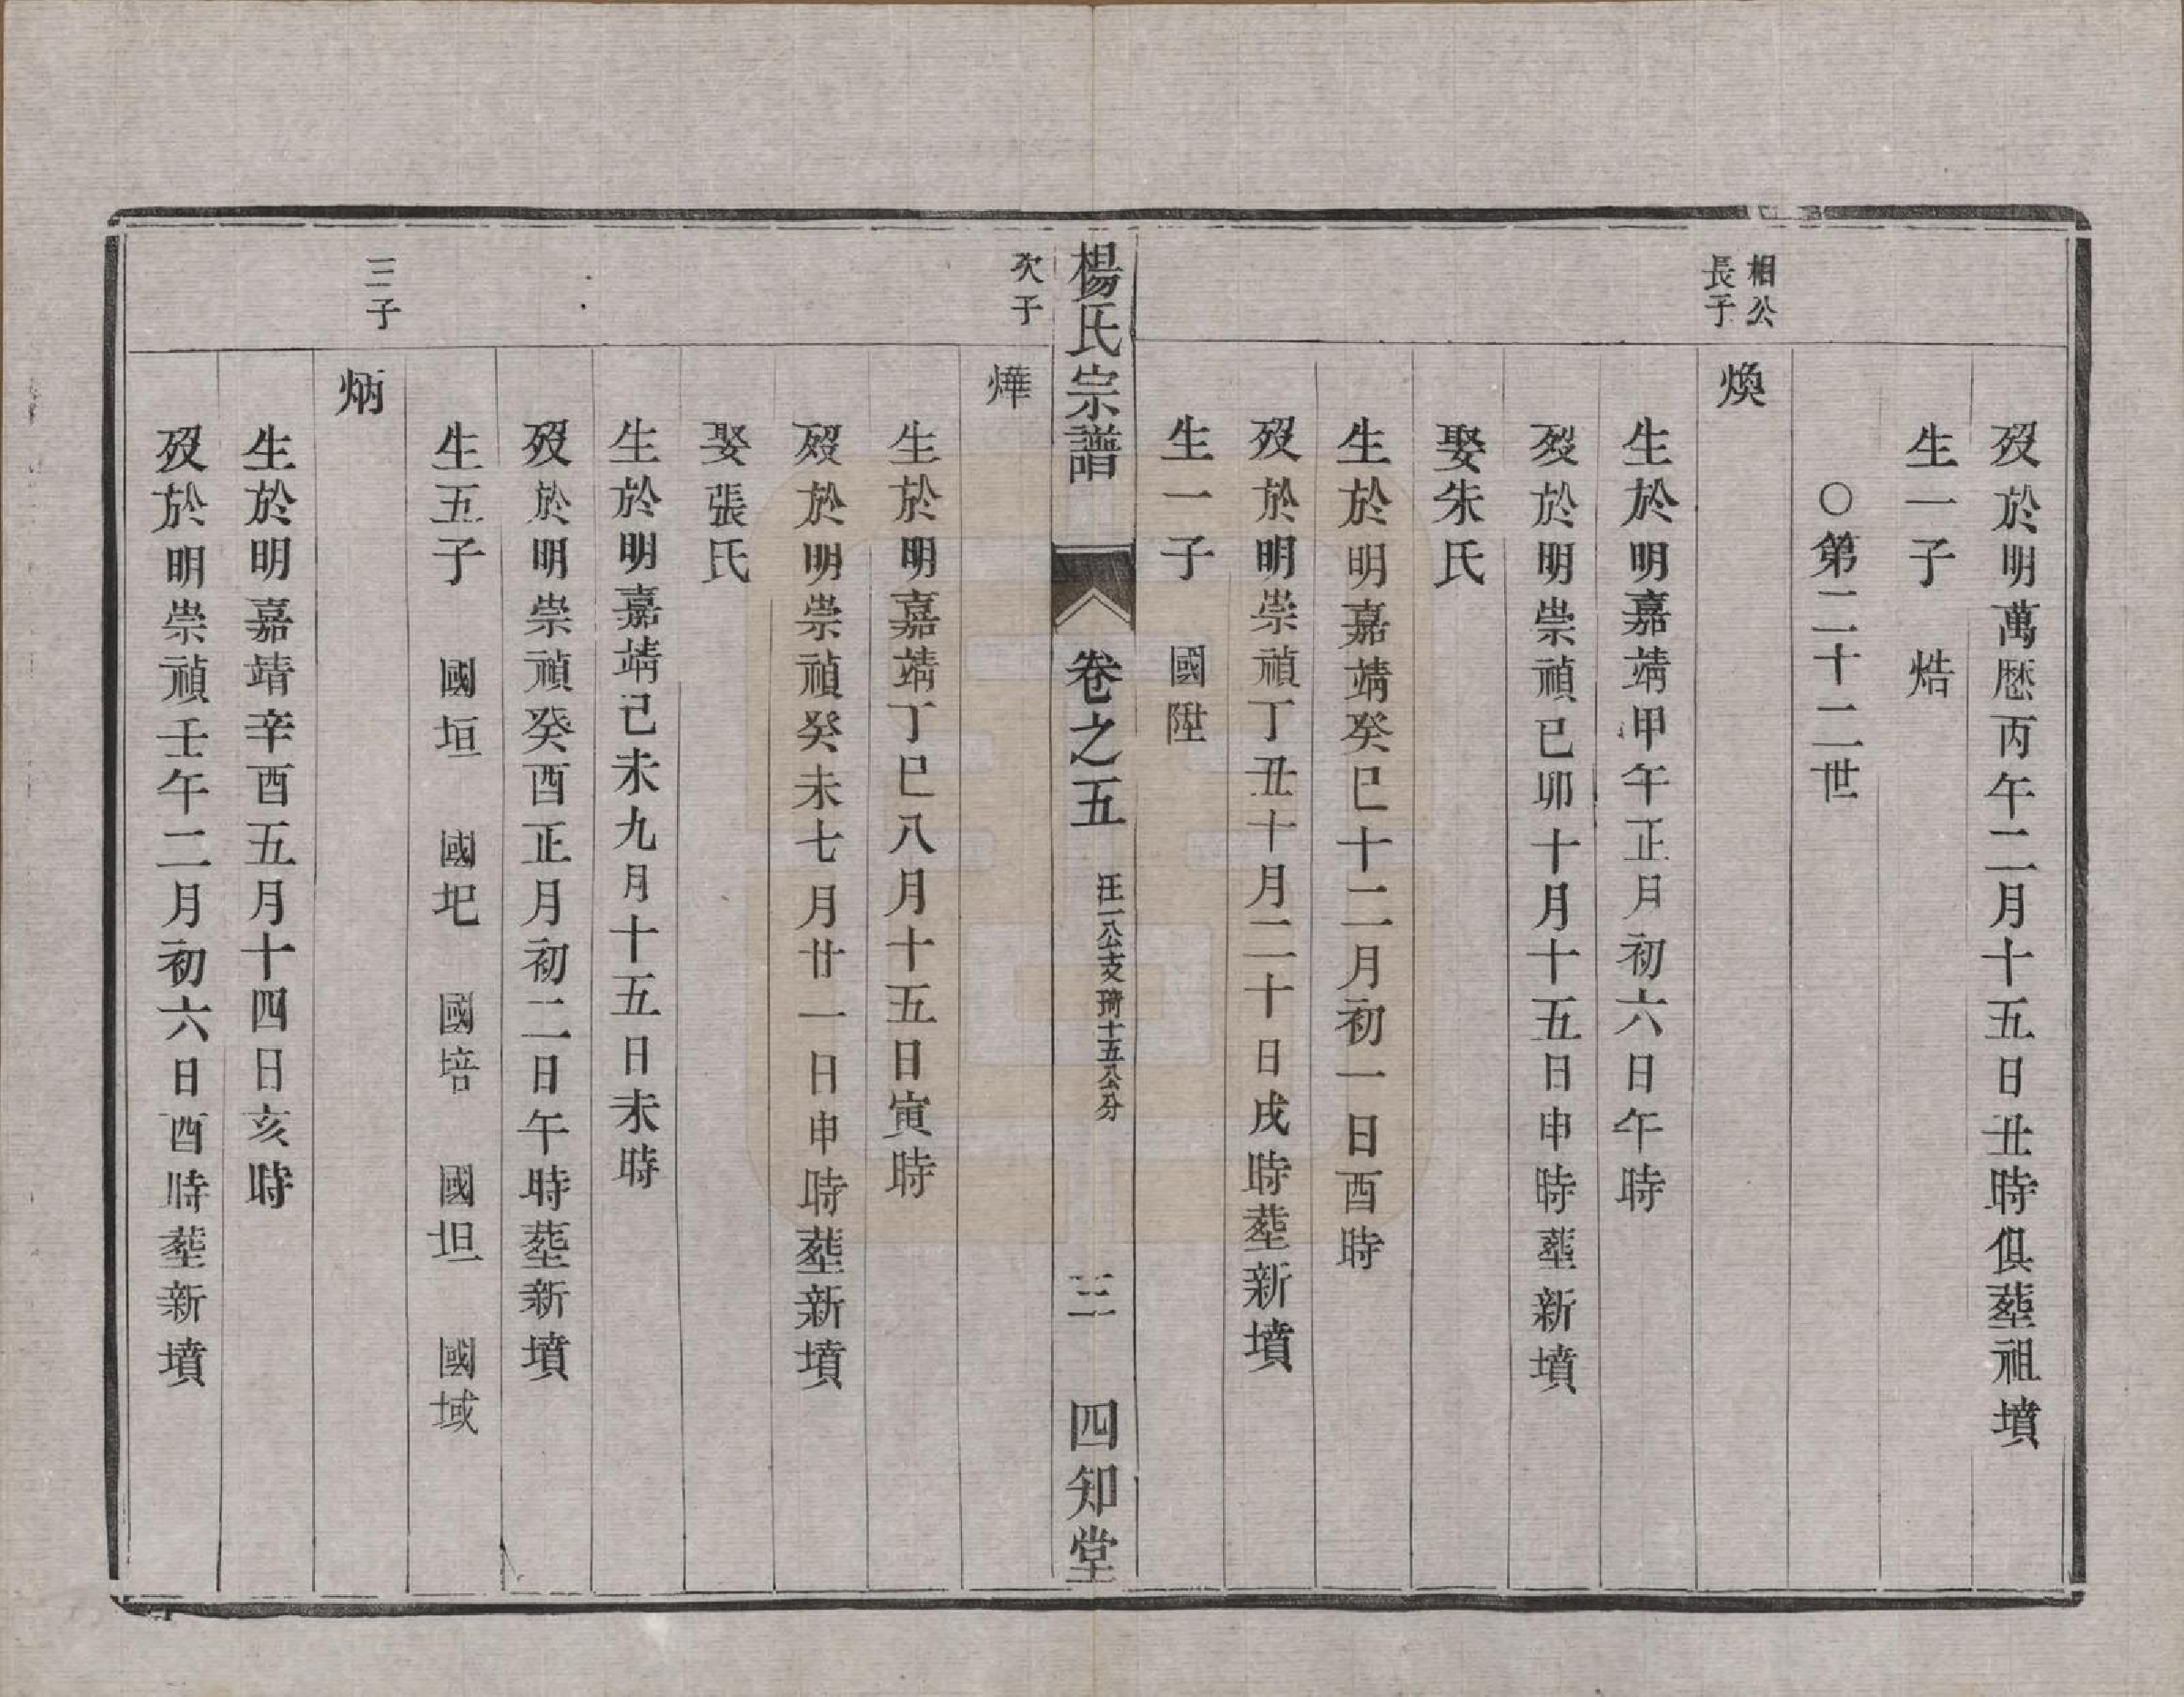 歿於明萬歷丙午二月十五日丑時俱塟祖墳
生一子　焅
○第二十二世
相公
長子
煥
生於明嘉靖甲午正月初六日午時
歿於明崇禎己卯十月十五日申時塟新墳
娶朱氏
生於明嘉靖癸巳十二月初一日酉時
歿於明崇禎丁丑十月二十日戌時塟新墳
生一子　國陞
楊氏宗譜　卷之五　汪一公支琦十五公分　三　四知堂
次子
燁
生於明嘉靖丁巳八月十五日寅時
歿於明崇禎癸未七月廿一日申時塟新墳
娶張氏
生於明嘉靖己未九月十五日未時
歿於明崇禎癸酉正月初二日午時塟新墳
生五子　國垣　國圯　國培　國坦　國域
三子
炳
生於明嘉靖辛酉五月十四日亥時
歿於明崇禎壬午二月初六日酉時塟新墳